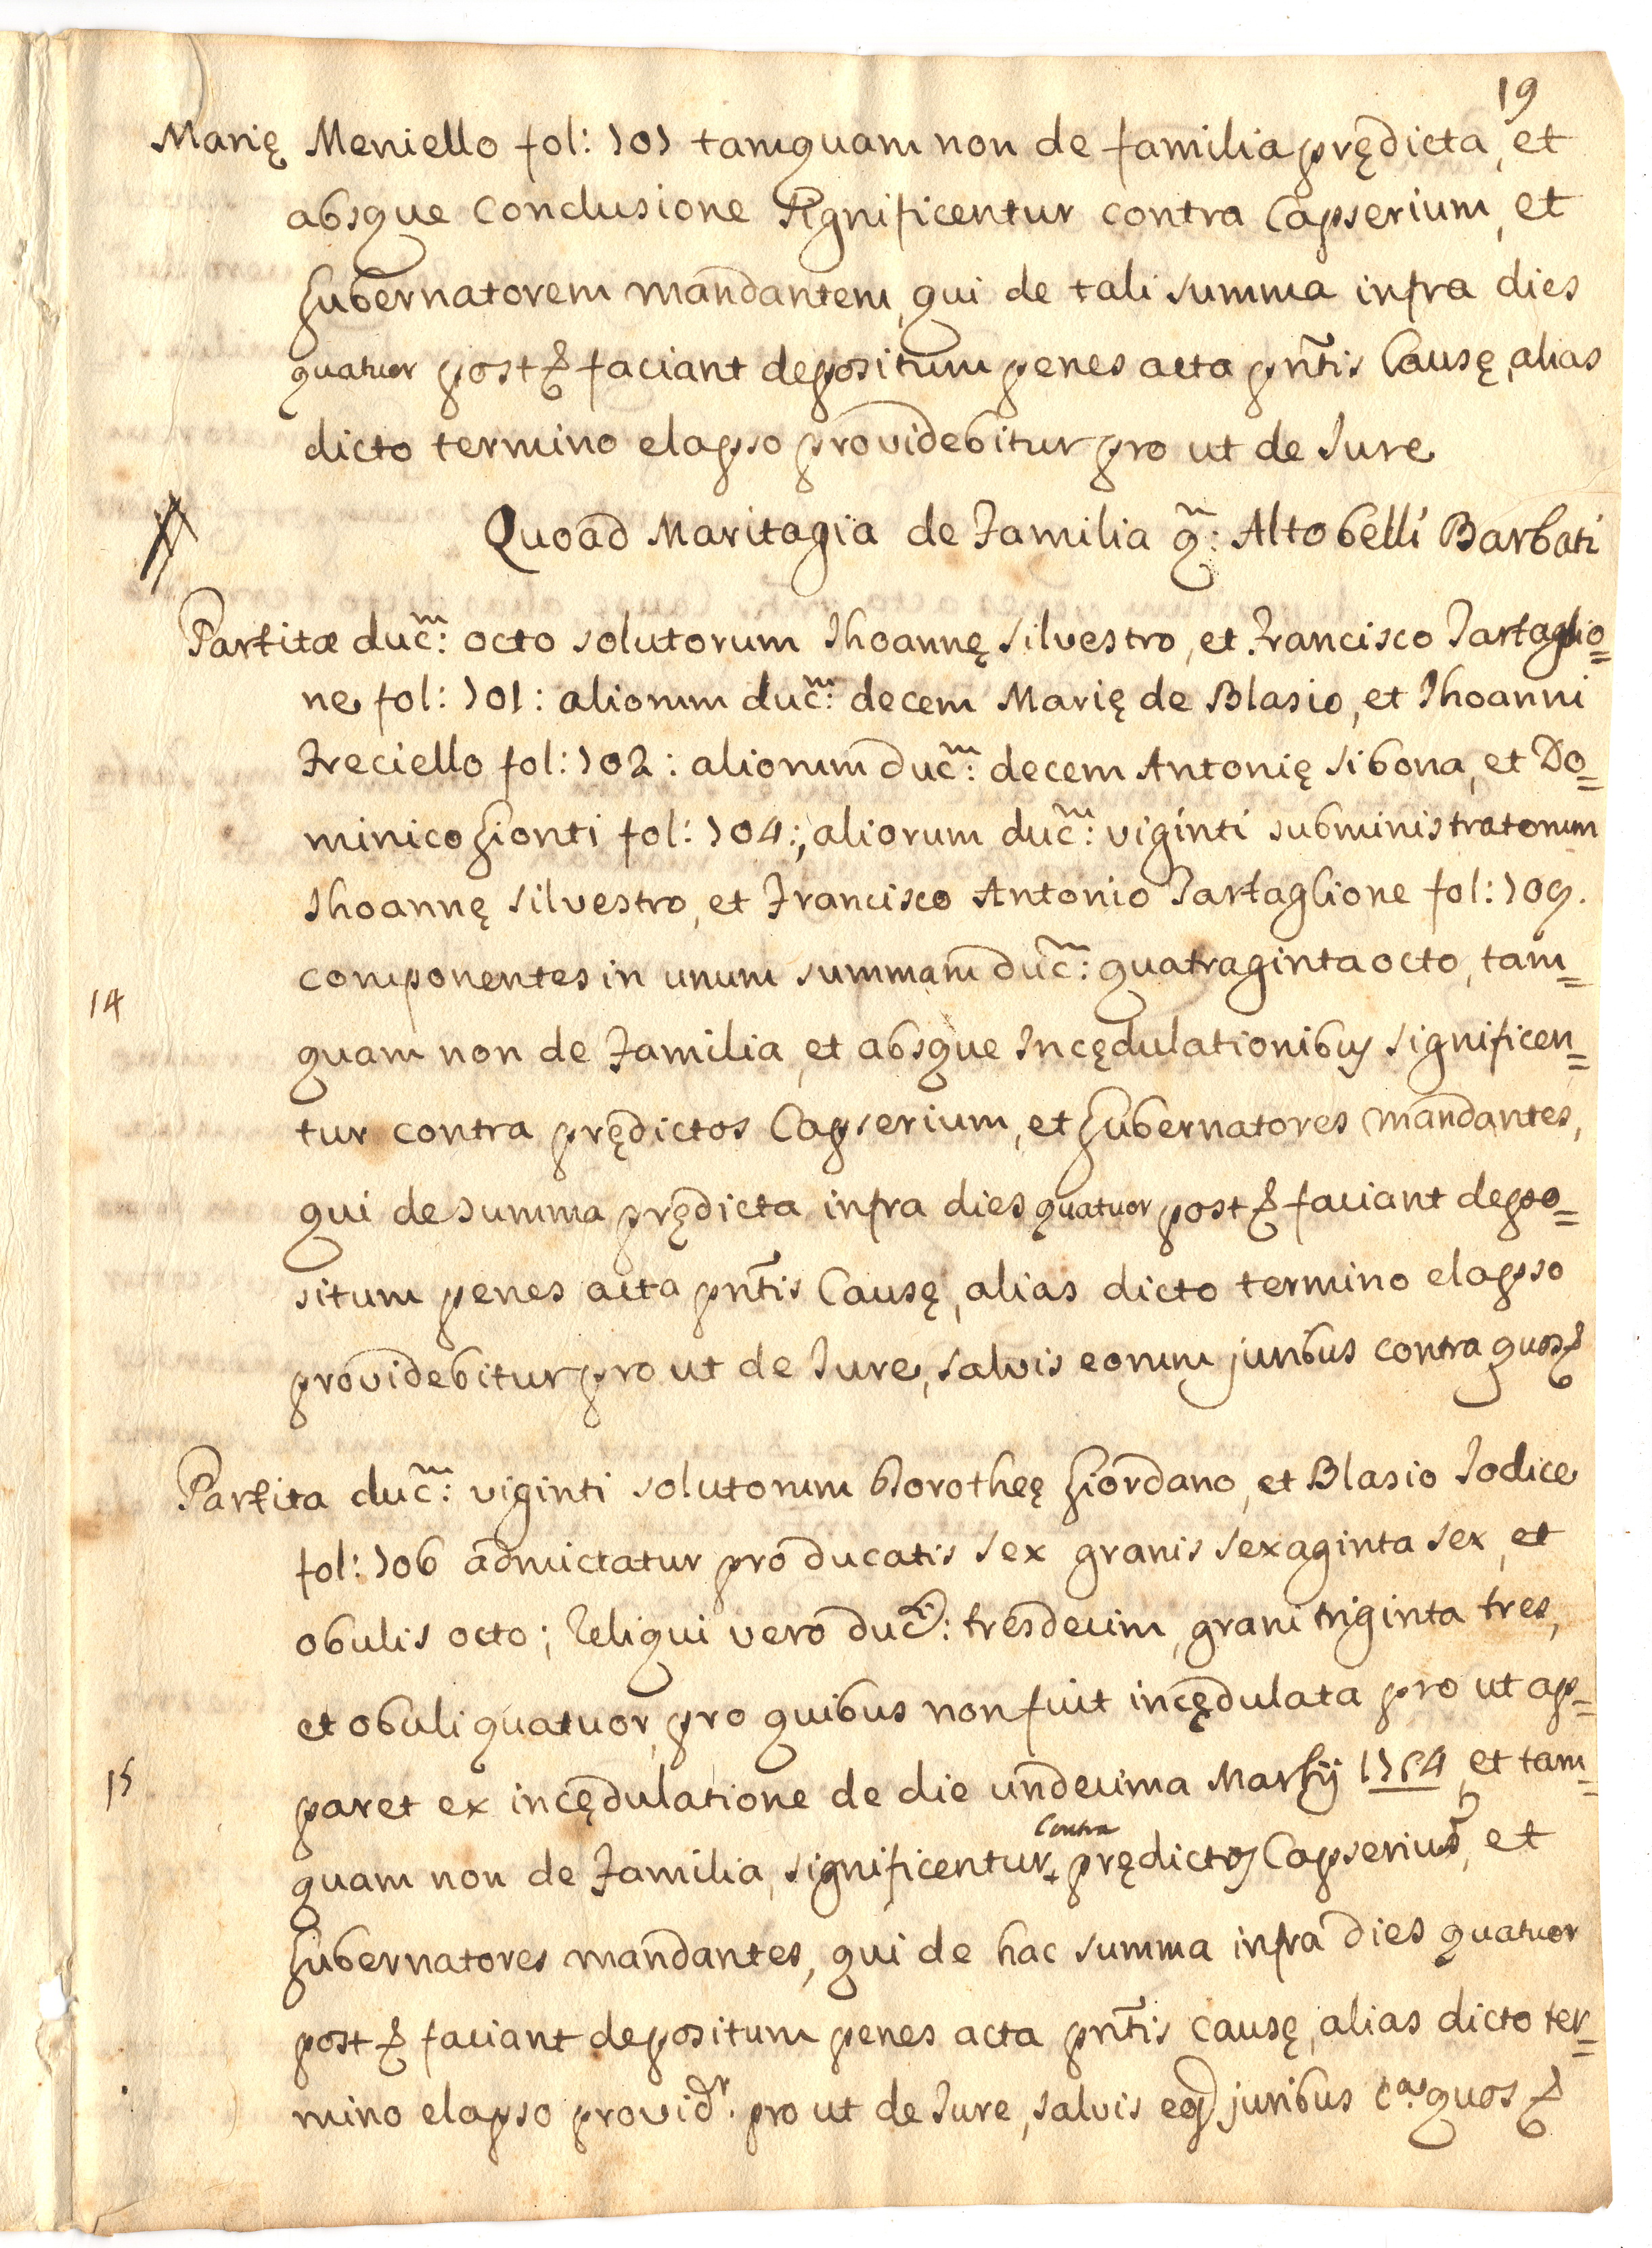 19
Marię Meniello fol: 101 tamquam non de familia prędicta, et
absque conclusione significentur contra Capserium, et
Gubernatorem mandantem, qui de tali summa infra dies
quatuor post & faciant depositum penes acta pn̄tis Causę, alias
dicto termino elapso providebitur pro ut de Jure
Quoad Maritagia de Familia qm̄: Altobelli Barbati
Partitæ ducm̄: octo solutorum Jhoannę Silvestro, et Francisco Tartaglio=
ne fol: 101: aliorum ducm̄: decem Marię de Blasio, et Jhoanni
Freciello fol: 102: aliorum ducm̄: decem Antonię Sibona, et Do=
minico Gionti fol: 104:, aliorum ducm̄: viginti subministratorum
Jhoannę Silvestro, et Francisco Antonio Tartaglione fol: 109.
componentes in unum summam ducm̄: quatraginta octo, tam=
14
quam non de Familia, et absque Incędulationibus significen=
tur contra prędictos Capserium, et Gubernatores mandantes,
qui de summa prędicta infra dies quatuor post & faciant depo=
situm penes acta pn̄tis Causę, alias dicto termino elapso
providebitur pro ut de Jure, salvis eorum juribus contra quos &
Partita ducm̄: viginti solutorum Dorotheę Giordano, et Blasio Jodice
fol: 106 admictatur pro ducatis sex granis sexaginta sex, et
obulis octo; Reliqui vero ducti: tresdecim, grani triginta tres,
et obuli quatuor, pro quibus non fuit incędulata pro ut ap=
15
paret ex incędulatione de die undecima Martij et tam=
quam non de Familia, significentur contra prędictos Capserium, et
Gubernatores mandantes, qui de hac summa infra dies quatuor
post & faciant depositum penes acta pn̄tis causę, alias dicto ter=
mino elapso providr. pro ut de Jure, salvis juribus ca. quos &